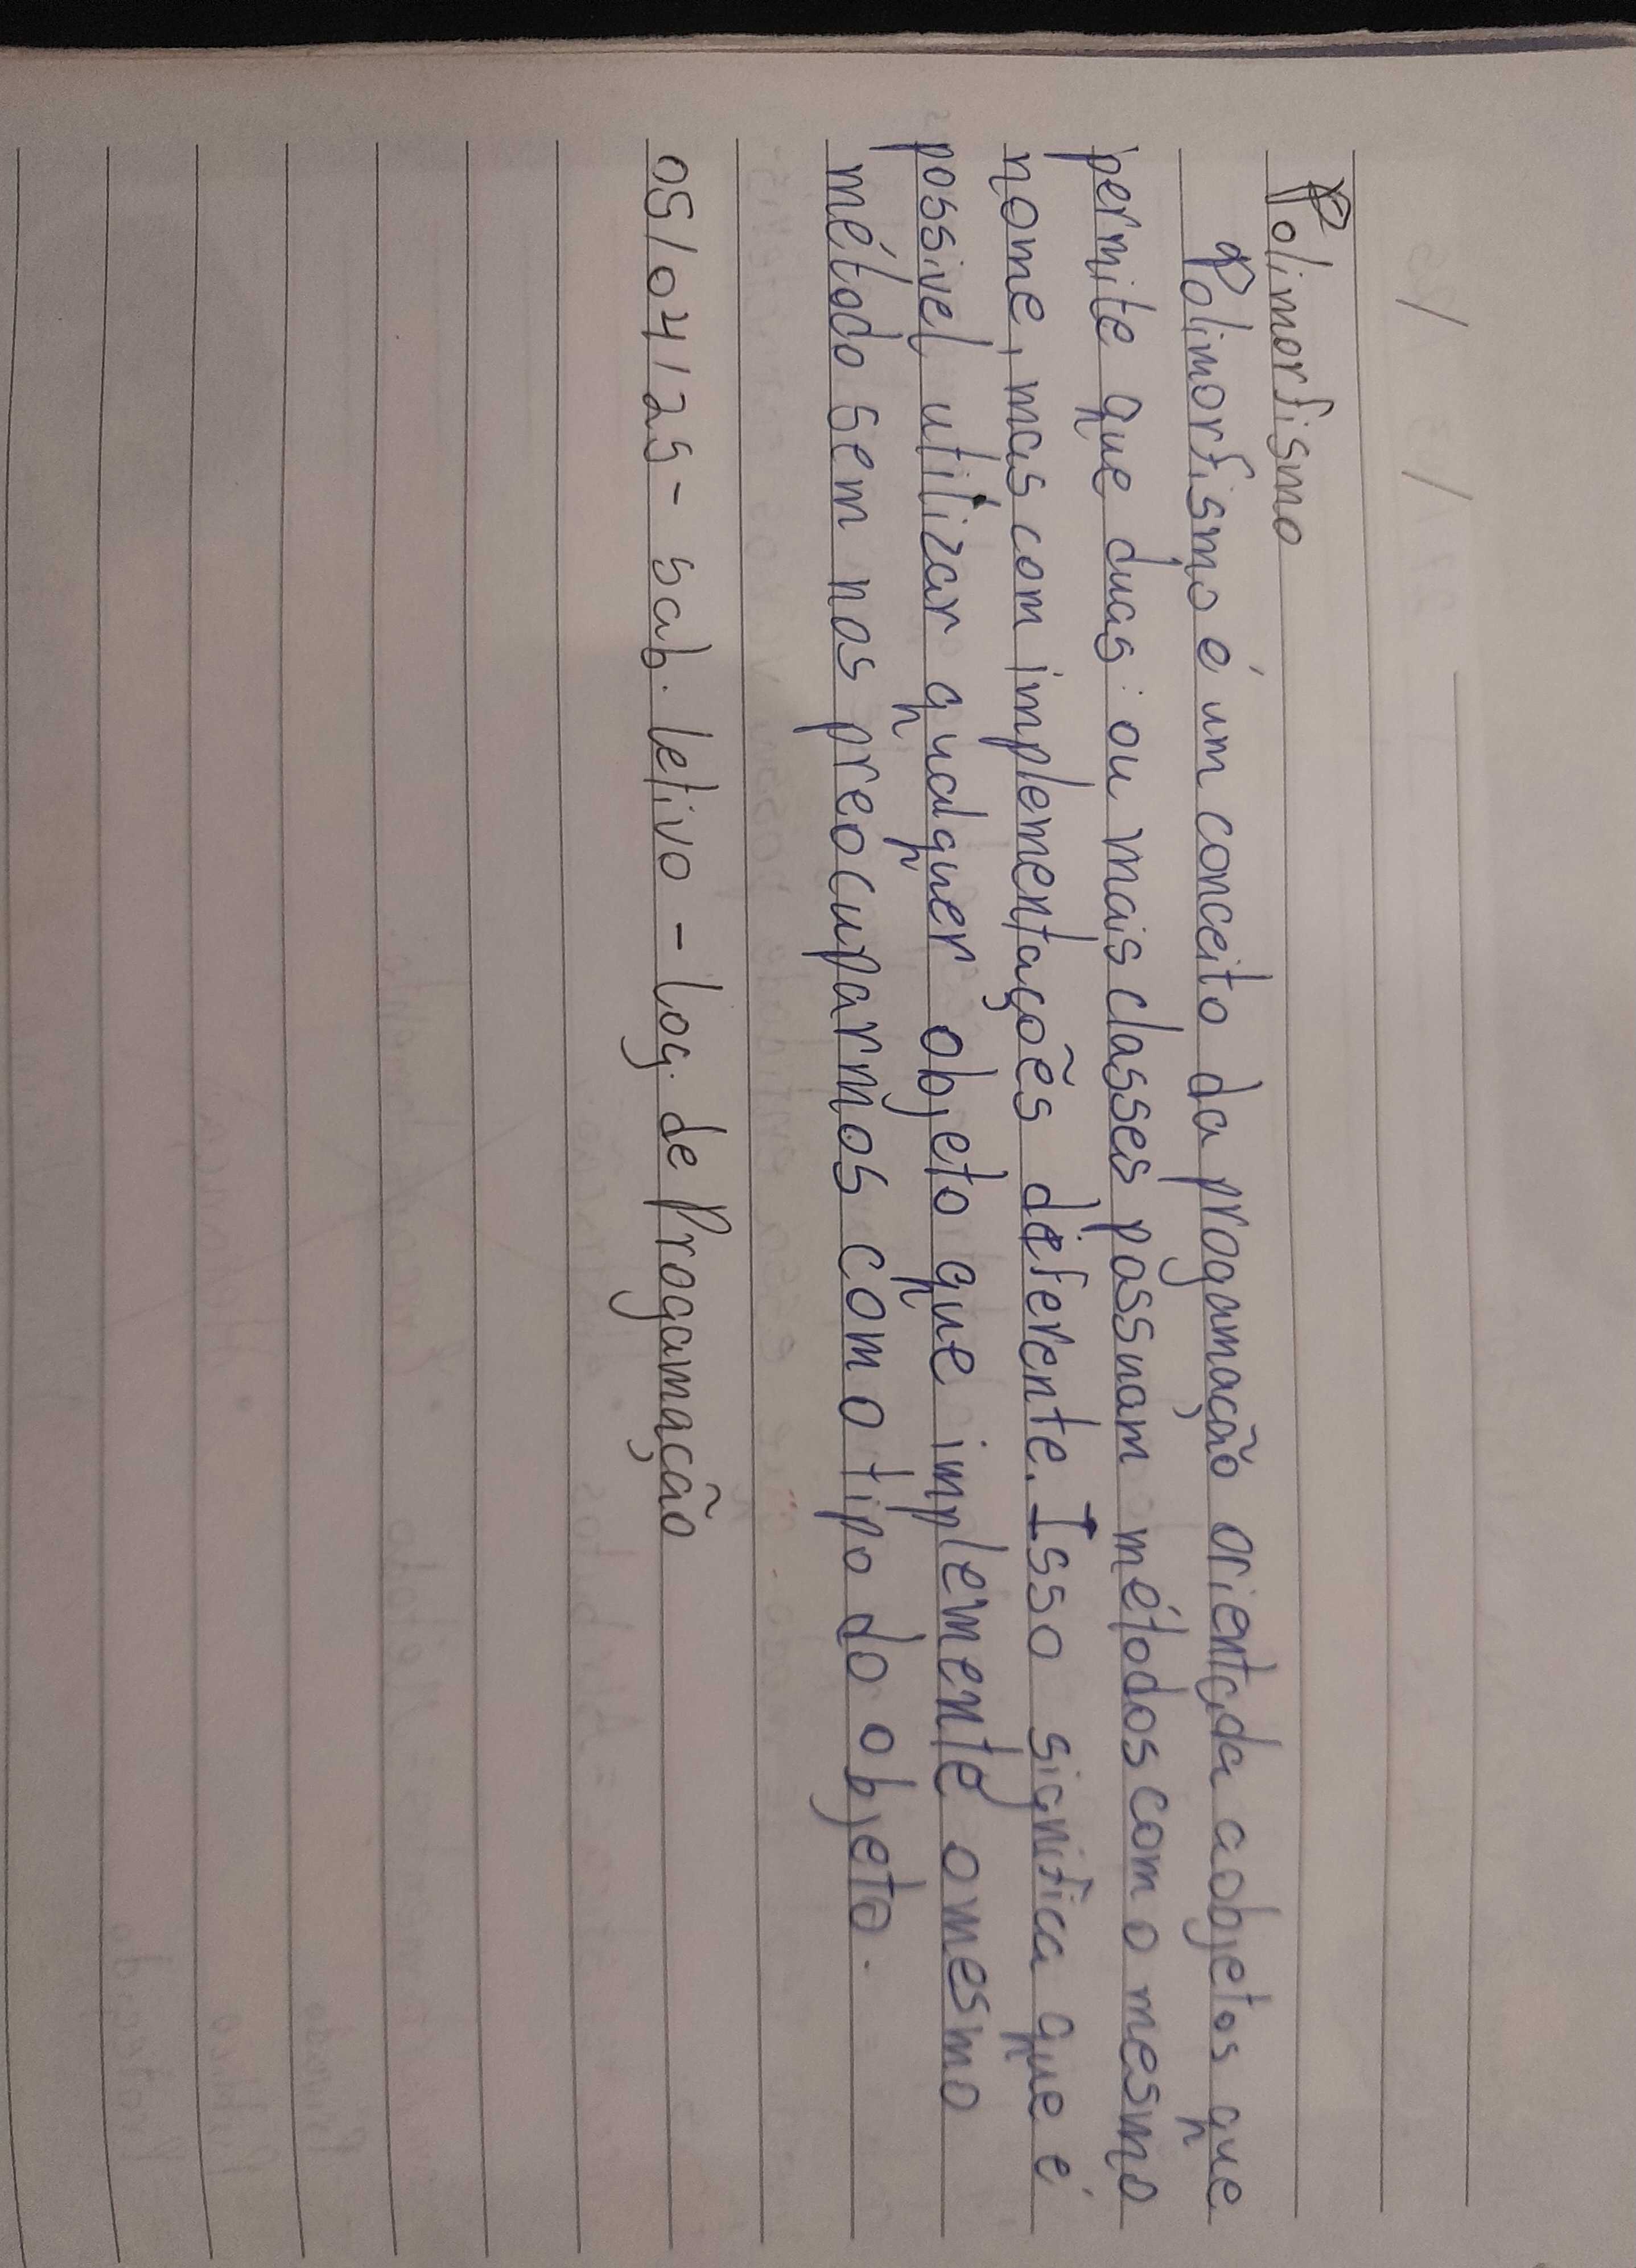 Polimorfismo
Polimorfismo é um conceito da progamação orientada a objetos que
permite que duas ou mais classes possuam métodos com o mesmo
nome, mas com implementações diferente. Isso significa que é
possivel utilizar qualquer objeto que implemente o mesmo
método sem nos preocuparmos com o tipo do objeto.
05/04/25 - Sab. letivo - Log. de Progamação